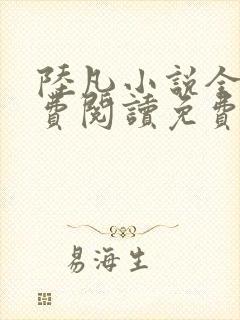 陸凡小說全
費閱讀免費
易海生